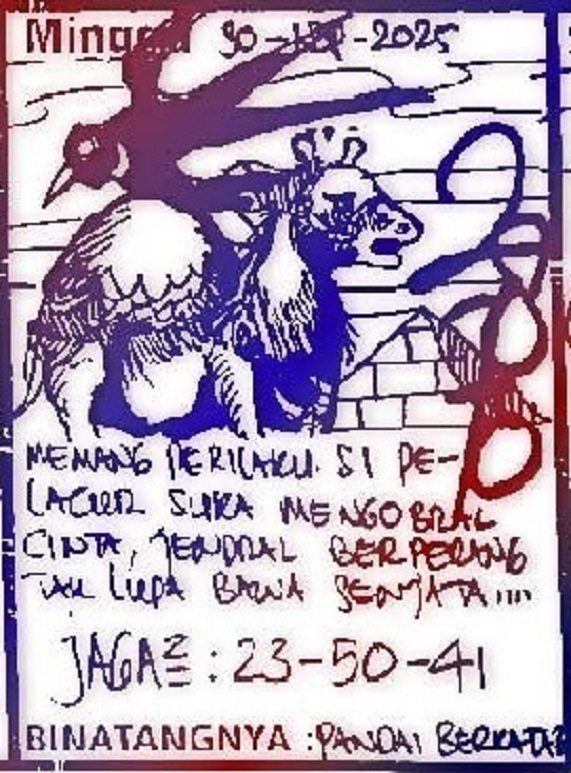 Minggu 30-
-2025
MEMANG PERILAKU SI PE-
LACUR SUKA MENGOBRAL
CINTA, JENDRAL BERPERANG
TAK LUPA BAWA SENJATA....
JAGA2 : 23-50-41
BINATANGNYA : PANDAI BERKATA2